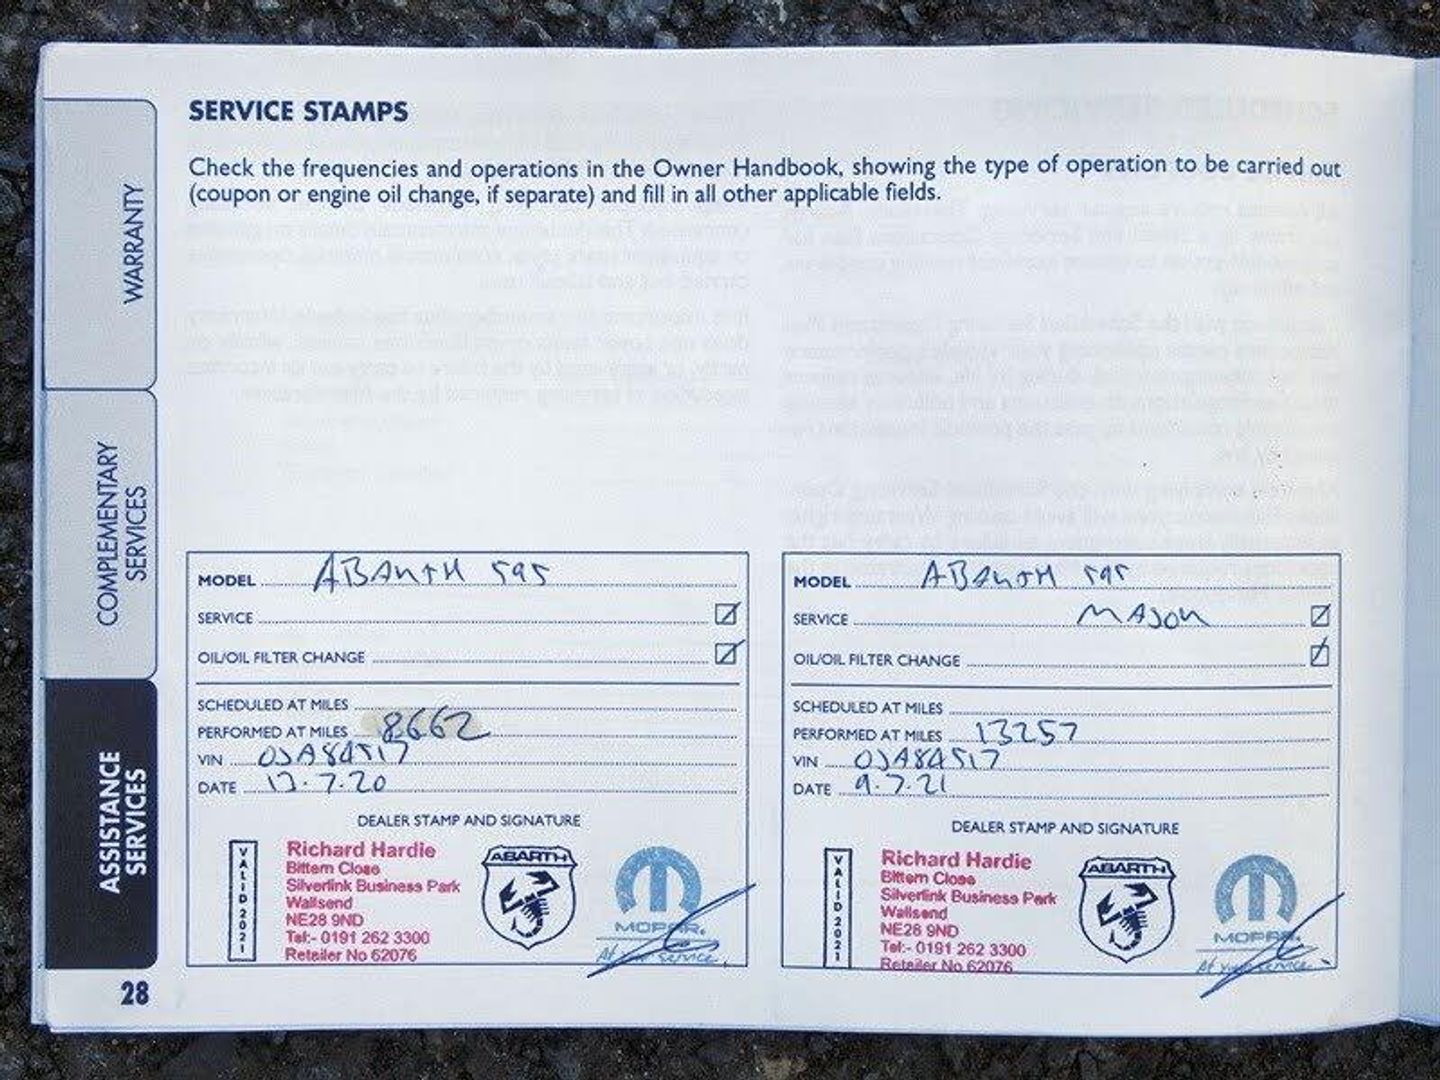 SERVICE STAMPS
Check the frequencies and operations in the Owner Handbook, showing the type of operation to be carried out
(coupon or engine oil change, if separate) and fill in all other applicable fields.
WARRANTY
COMPLEMENTARY
SERVICES
ASSISTANCE
SERVICES
MODEL ABARTH 595
SERVICE
OIL/OIL FILTER CHANGE
SCHEDULED AT MILES
PERFORMED AT MILES 8662
VIN 0JA84517
DATE 7.20
DEALER STAMP AND SIGNATURE
VALID 2021
Richard Hardie
Bittern Close
Silverlink Business Park
Wallsend
NE28 9ND
Tel:- 0191 262 3300
Retailer No 62076
ABARTH
MOPAR.
At your service.
MODEL ABARTH 595
SERVICE MAJOR
OIL/OIL FILTER CHANGE
SCHEDULED AT MILES
PERFORMED AT MILES 13257
VIN 0JA84517
DATE 9.7.21
DEALER STAMP AND SIGNATURE
VALID 2021
Richard Hardie
Bittern Close
Silverlink Business Park
Wallsend
NE28 9ND
Tel:- 0191 262 3300
Retailer No 62076
ABARTH
MOPAR.
At your service.
28